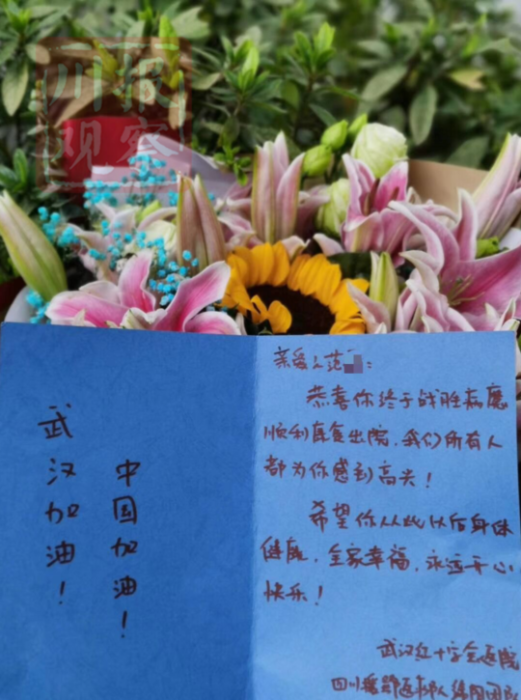 川报
观察
武汉加油！
中国加油！
亲爱之范
恭喜你终于战胜病魔
顺利康复出院，我们所有人
都为你感到高兴！
希望你从此以后身体
健康，全家幸福，永远开心
快乐！
武汉红十字会医院
四川援鄂医疗队